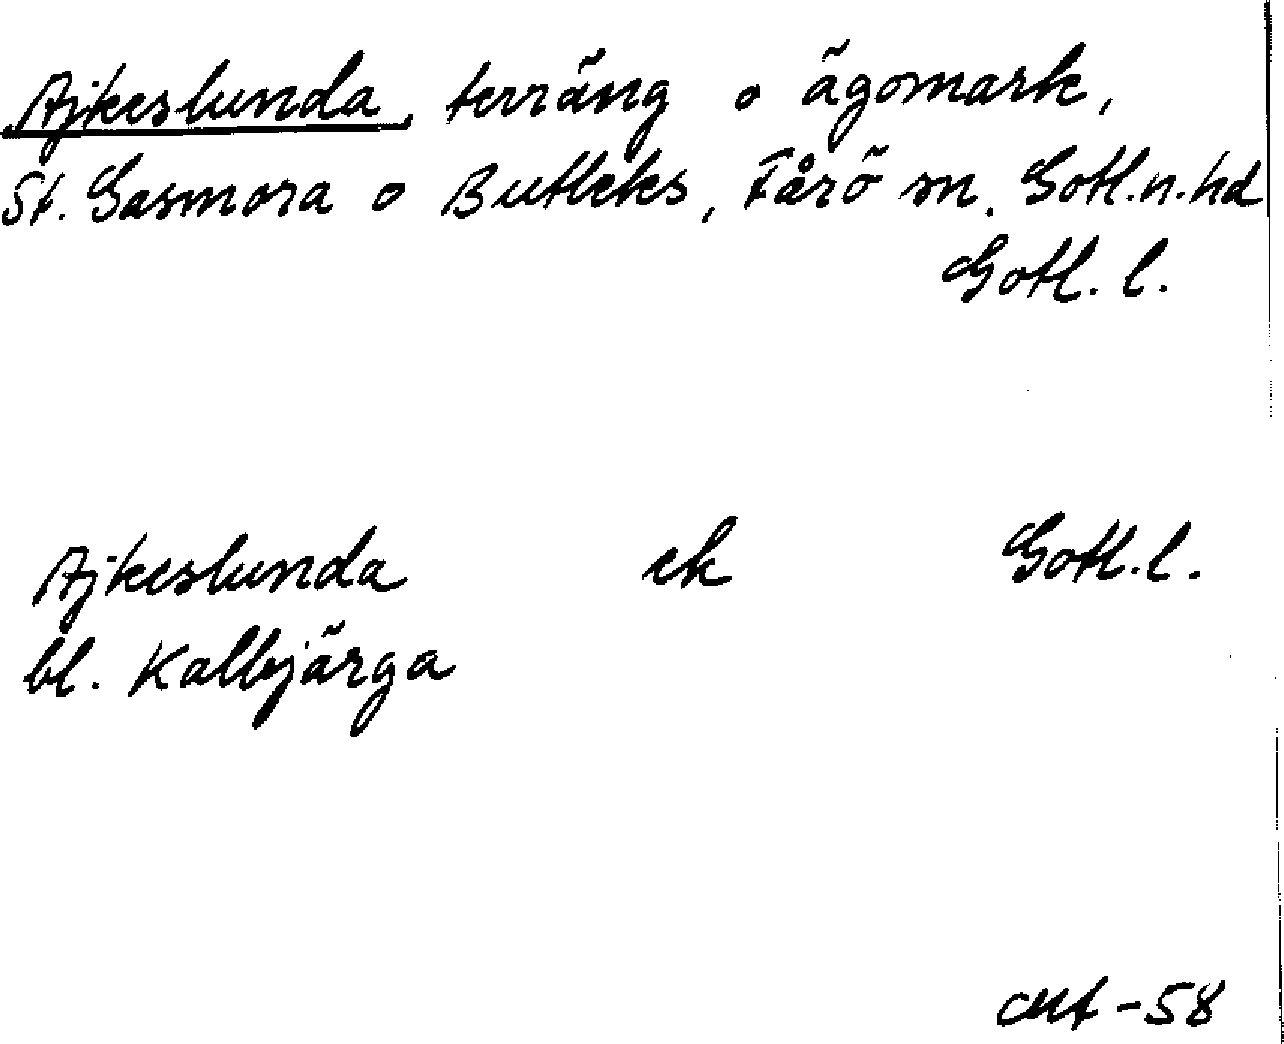 Ajkeslunda, terräng o ägomark,
St. Gasmora o Butleks, Fårö sn. Gotl.n.hd
Gotl. l.
Ajkeslunda ek Gotl.l.
bl. Kalbjärga
-58